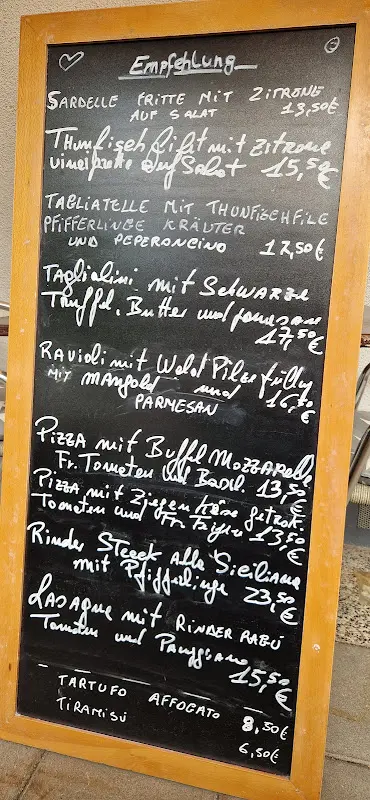 Empfehlung
SARDELLE FRITTE MIT ZITRONE
AUF SALAT 13,50€
Thunfisch filit mit Zitrone
vineigrette auf Salat 15,50€
TAGLIATELLE MIT THUNFISCHFILE
PFIFFERLINGE KRÄUTER
UND PEPERONCINO 17,50€
Tagliolini mit Schwarze
Trüffel, Butter und parmesane
17,50€
Ravioli mit Wald Pilze füllung
MIT Mangold und 16,50€
PARMESAN
Pizza mit Buffel Mozzarella
Fr. Tomaten und Basil. 13,50€
Pizza mit Ziegen käse getrok.
Tomaten und Fr. Feigen 13,50€
Rinder Steack alla Siciliana
mit Pfifferlinge 23,50€
Lasagne mit RINDER RAGÚ
Tomaten und Parmigiano
15,50€
TARTUFO AFFOGATO 8,50€
TIRAMISÚ 6,50€